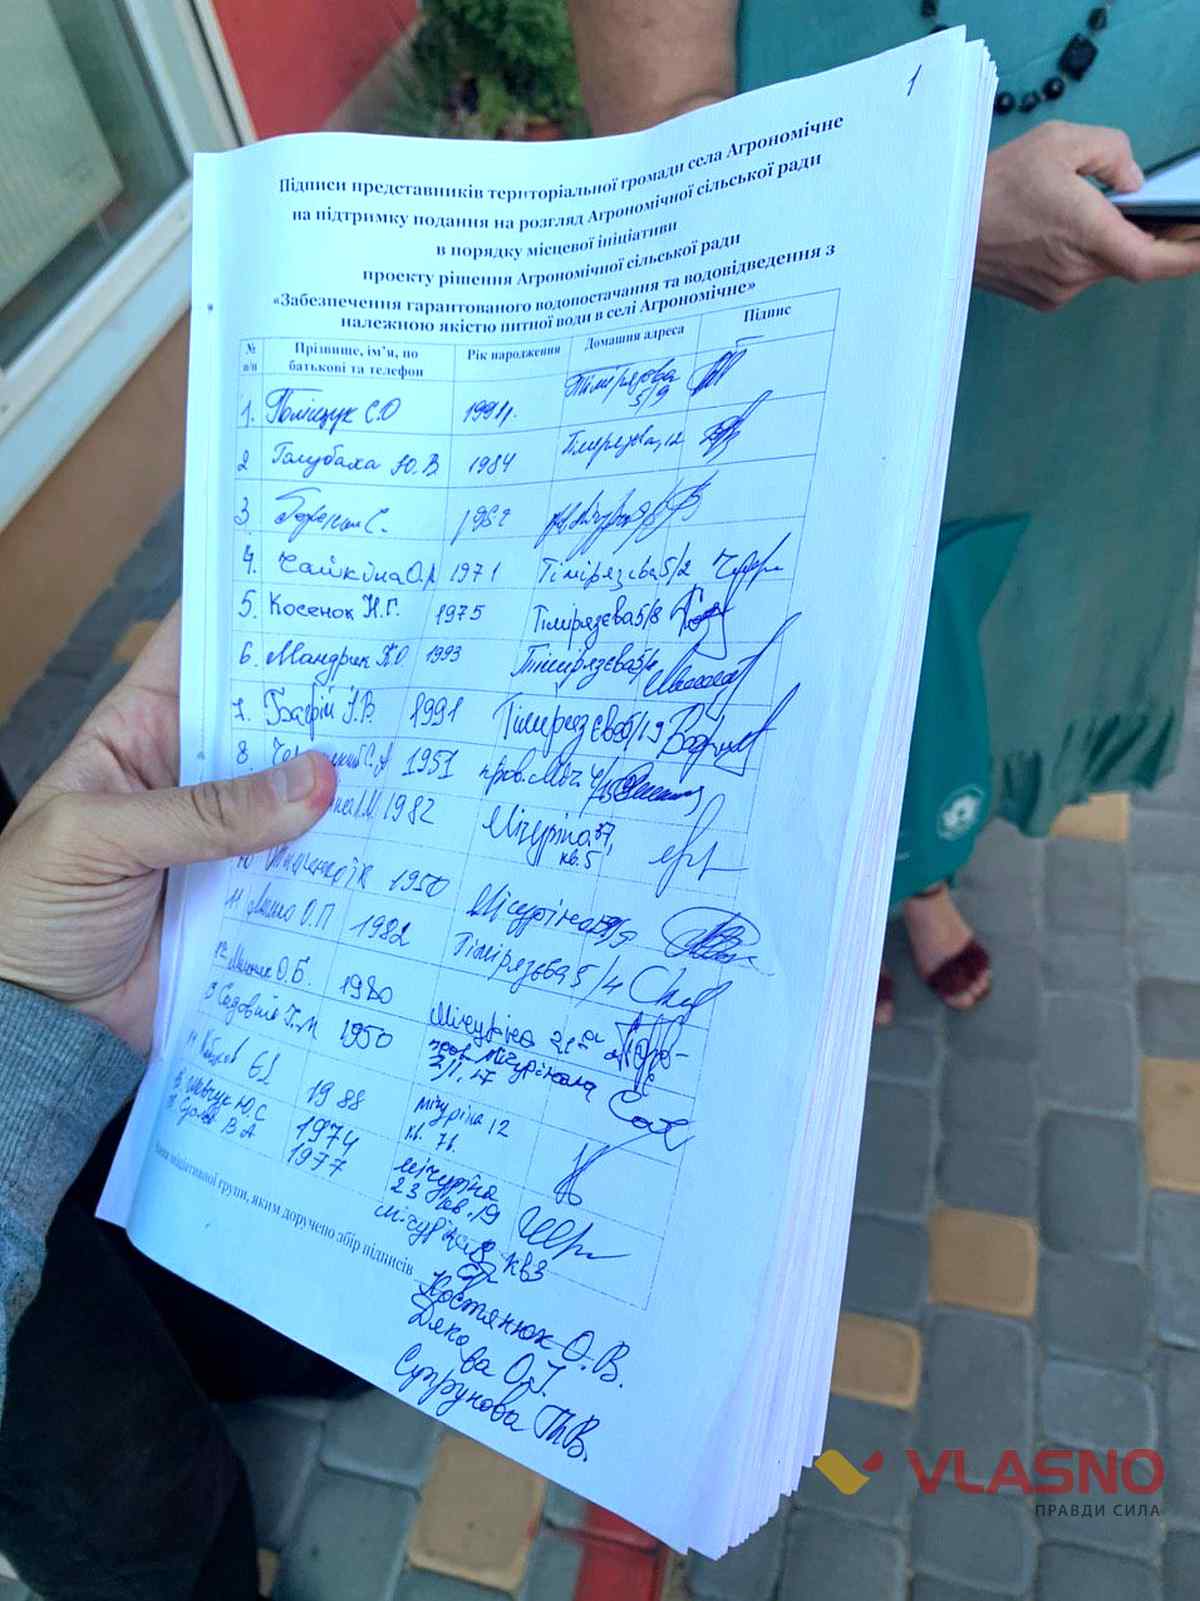 1
Підписи представників територіальної громади села Агрономічне
на підтримку подання на розгляд Агрономічної сільської ради
в порядку місцевої ініціативи
проекту рішення Агрономічної сільської ради
«Забезпечення гарантованого водопостачання та водовідведення з
належною якістю питної води в селі Агрономічне»
№ п/п Прізвище, ім'я, по батькові та телефон Рік народження Домашня адреса Підпис
1. Поліщук С.О 1991р. Тімірязєва 5/9
2 Голубаха Ю.В 1984 Тімірязєва, 12
3 1952
4. Чайкіна О. 1971 Тімірязєва 5/2
5. Косенок Н.Г. 1975 Тімірязєва 5/8
6. Мандрик 1993 Тімірязєва
7. Багрій І.В. 1991 Тімірязєва 5/19
8. 1951 пров. Міч.
1982 Мічуріна 37, кв. 5
10 1950 Мічуріна
11 О.П 1982 Тімірязєва 5/4
12 О.Б. 1980 Мічуріна
Садовий 1950 пров. Мічуріна 2/1, 17
1988 Мічуріна 12 кв. 7
Шевчук Ю.С 1974 Мічуріна 23 кв. 19
В А 1977 Мічуріна кв 3
ініціативної групи, яким доручено збір підписів
Костянюк О.В.
Дякова О.І.
Супрунова В.
VLASNO
ПРАВДИ СИЛА